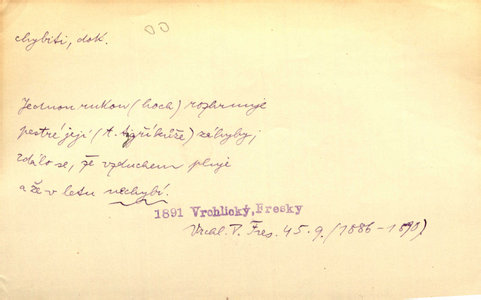 chybiti, dok.
Jednou rukou (hoch) rozhrnuje
pestré její (t. tygří kůže) záhyby,
zdálo se, že vzduchem pluje
a že v letu nechybí.
1891 Vrchlický, Fresky
Vrchl. V. Fres. 45. 9. (1886-1890)